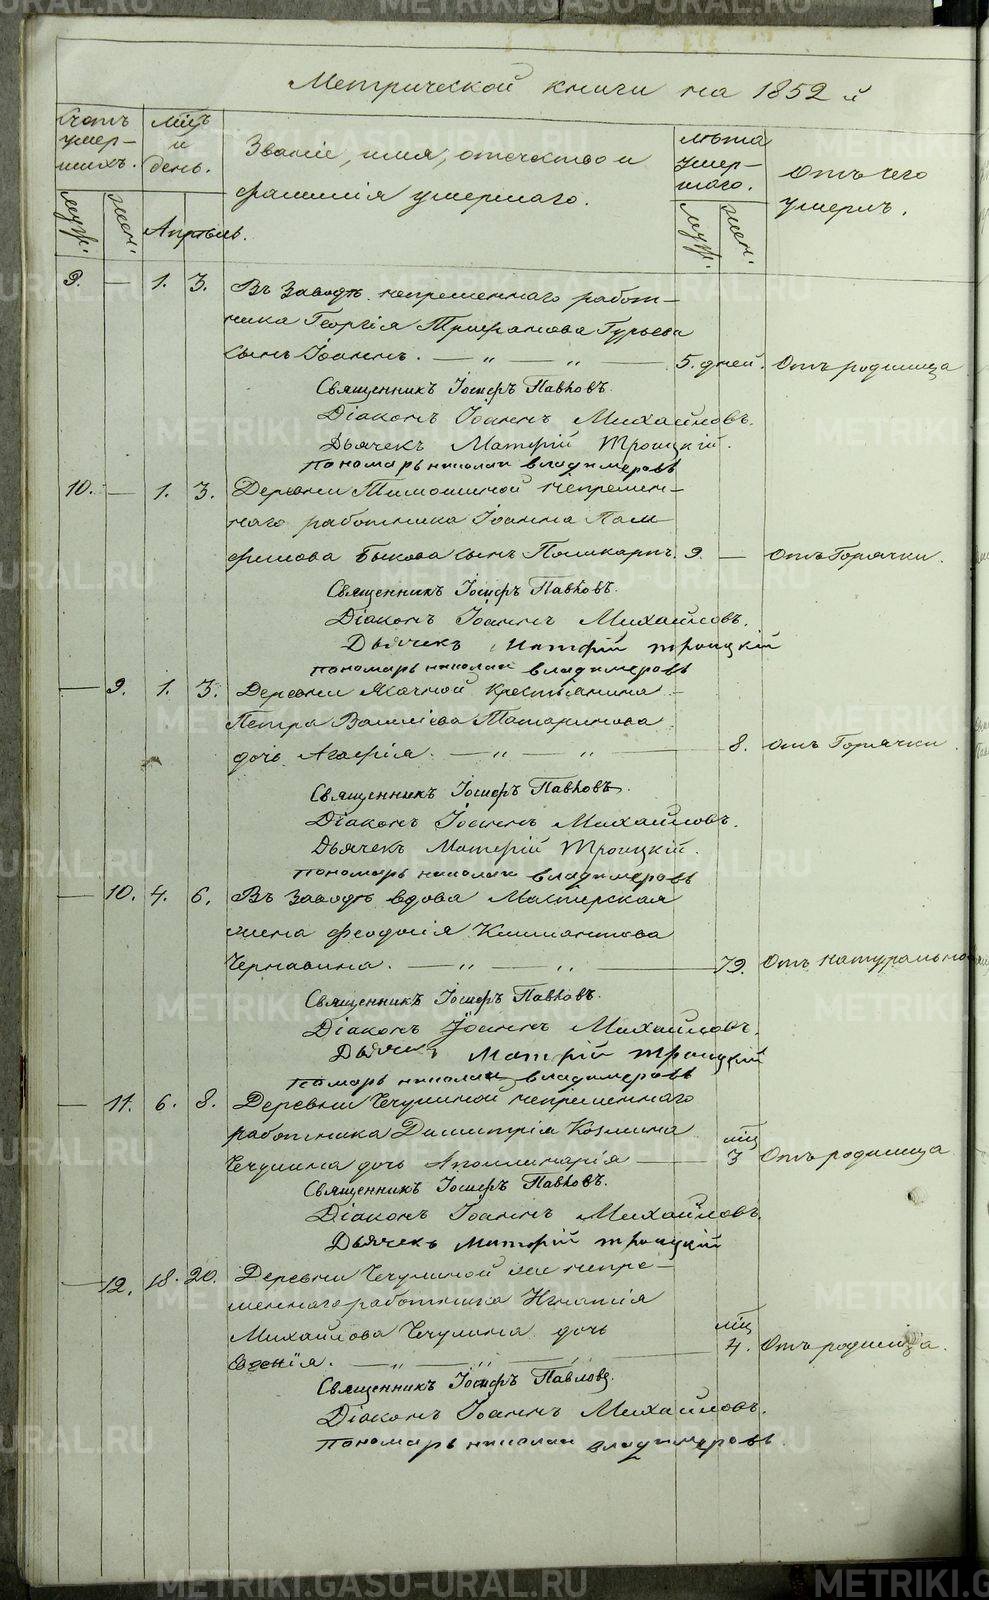 Метрической книги на 1852 й
Счотъ умер-шихъ.
муж.
жен.
Мцъ и день.
Апрѣль.
Званіе, имя, отечество и
фамилія умершаго.
Лѣта умер-шаго.
муж.
жен.
Отъ чего
умеръ.
9. — 1. 3. Въ Заводѣ непременнаго работ-
ника Георгія Трифанова Гурьева
сынъ Іоаннъ. — „ — „ — 5. дней. Отъ родимца
Священникъ Іосифъ Павловъ.
Діаконъ Іоаннъ Михайловъ.
Дьячекъ Матфій Троицкій.
пономарь николай владимеровъ
10. — 1. 3. Деревни Тимошиной непремен-
наго работника Іоанна Пам-
филова Быкова сынъ Поликарпъ. 9. — Отъ Горячки.
Священникъ Іосифъ Павловъ.
Діаконъ Іоаннъ Михайловъ.
Дьячекъ Матфій троицкій
пономарь николай владимеровъ
— 9. 1. 3. Деревни Ячной крестьянина
Петра Василіева Татаринова
дочь Агафія. — „ — „ — 8. отъ Горячки.
Священникъ Іосифъ Павловъ.
Діаконъ Іоаннъ Михайловъ.
Дьячекъ Матфій Троицкій.
пономарь николай владимеровъ
— 10. 4. 6. Въ Заводѣ вдова Мастерская
жена феодосія Климантова
Чернавина. — „ — „ — 79. Отъ натурально
Священникъ Іосифъ Павловъ.
Діаконъ Іоаннъ Михайловъ.
Дьячекъ Матфій троицкій
помарь николай владимеровъ
— 11. 6. 8. Деревни Чечулиной непременнаго
работника Димитрія Козмина
Чечулина дочь Аполлинарія — мц 3 Отъ родимца
Священникъ Іосифъ Павловъ.
Діаконъ Іоаннъ Михайловъ.
Дьячекъ Матфій троицкій
— 12. 18. 20. Деревни Чечулиной же непре-
меннаго работника Игнатія
Михайлова Чечулина дочь
Овгенія. — „ — „ — „ — мц 4. Отъ родимца.
Священникъ Іосифъ Павловъ.
Діаконъ Іоаннъ Михайловъ.
пономарь николай владимеровъ.
METRIKI.GASO-URAL.RU